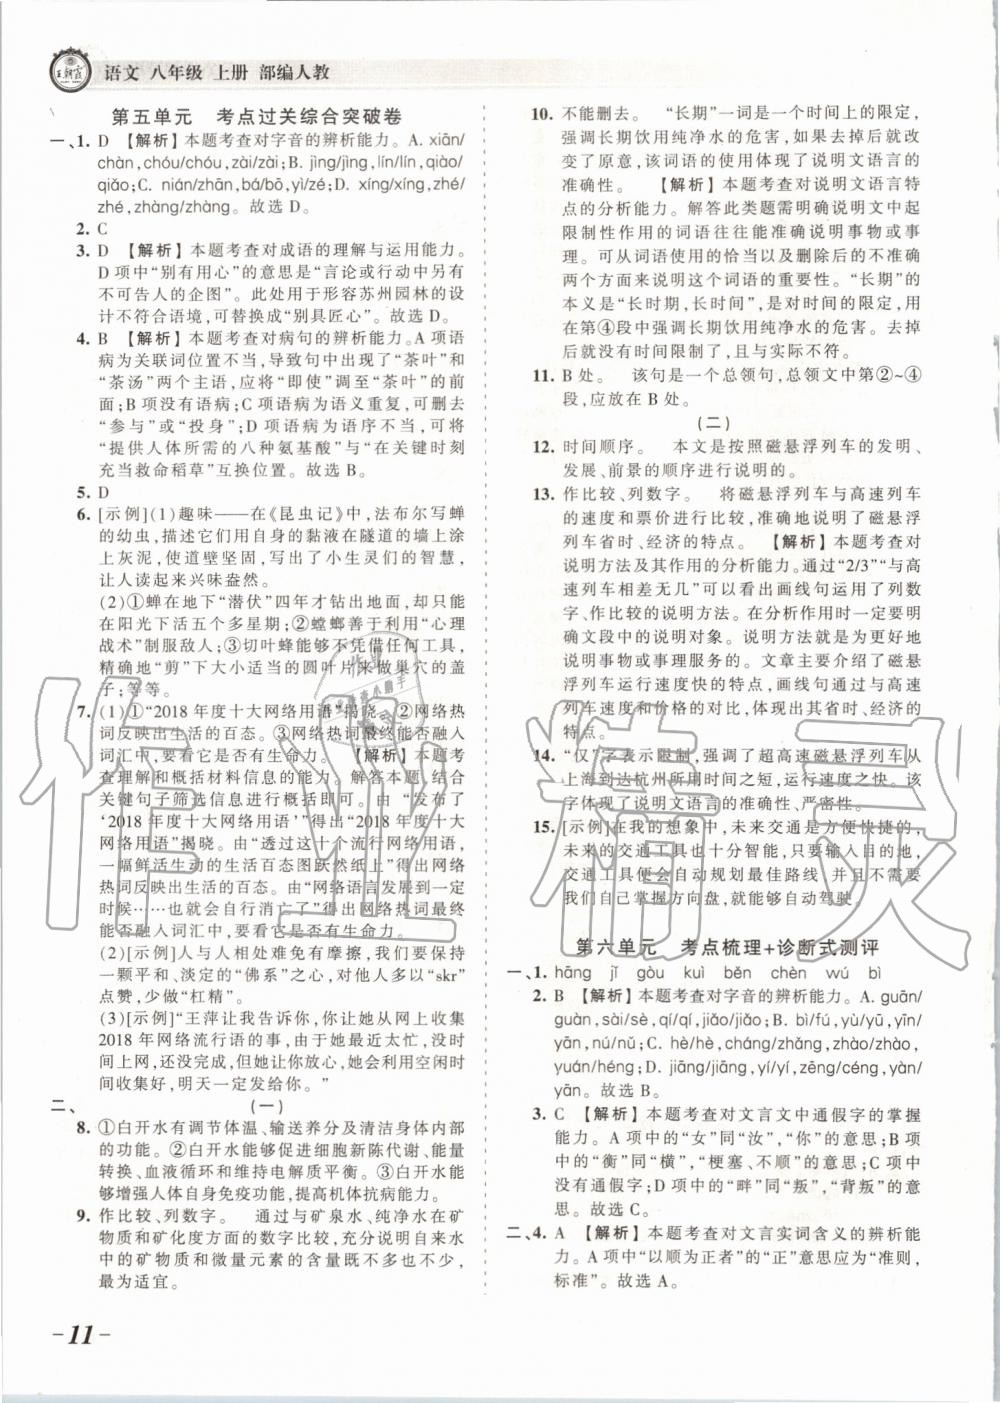 王朝霞
语文 八年级 上册 部编人教
第五单元 考点过关综合突破卷
一、1. D 【解析】本题考查对字音的辨析能力。A. xiān/
chàn,chóu/chóu,zài/zài;B. jìng/jìng,lín/lín,qiào/
qiǎo;C. nián/zhān,bá/bō,yì/zé;D. xíng/xíng,zhé/
zhé,zhàng/zhàng。故选 D。
2. C
3. D 【解析】本题考查对成语的理解与运用能力。
D 项中“别有用心”的意思是“言论或行动中另有
不可告人的企图”。此处用于形容苏州园林的设
计不符合语境,可替换成“别具匠心”。故选 D。
4. B 【解析】本题考查对病句的辨析能力。A 项语
病为关联词位置不当,导致句中出现了“茶叶”和
“茶汤”两个主语,应将“即使”调至“茶叶”的前
面;B 项没有语病;C 项语病为语义重复,可删去
“参与”或“投身”;D 项语病为语序不当,可将
“提供人体所需的八种氨基酸”与“在关键时刻
充当救命稻草”互换位置。故选 B。
5. D
6. [示例](1)趣味——在《昆虫记》中,法布尔写蝉
的幼虫,描述它们用自身的黏液在隧道的墙上涂
上灰泥,使道壁坚固,写出了小生灵们的智慧,
让人读起来兴味盎然。
(2)①蝉在地下“潜伏”四年才钻出地面,却只能
在阳光下活五个多星期;②螳螂善于利用“心理
战术”制服敌人;③切叶蜂能够不凭借任何工具,
精确地“剪”下大小适当的圆叶片来做巢穴的盖
子;等等。
7. (1)①“2018 年度十大网络用语”揭晓。②网络热
词反映出生活的百态。③网络热词最终能否融入
词汇中,要看它是否有生命力。 【解析】本题考
查理解和概括材料信息的能力。解答本题,结合
关键句子筛选信息进行概括即可。由“发布了
‘2018 年度十大网络用语’”得出“2018 年度十大
网络用语”揭晓。由“透过这十个流行网络用语,
一幅鲜活生动的生活百态图跃然纸上”得出网络
热词反映出生活的百态。由“网络语言发展到一定
时候……也就会自行消亡了”得出网络热词最终
能否融入词汇中,要看它是否有生命力。
(2)[示例]人与人相处难免有摩擦,我们应该以
一颗平和、淡定的“佛系”之心,对真善美以“skr”
点赞,少一些“杠精”。
(3)[示例]“王萍让我告诉你,你让她从网上收集
2018 年网络流行语的事,由于她最近太忙,没时
间上网,还没完成,但她让你放心,她会利用空闲时
间收集好,明天一定发给你。”
二、 (一)
8. ①白开水有调节体温、输送养分及清洁身体内部
的功能。②白开水能够促进细胞新陈代谢、能量
转换、血液循环和维持电解质平衡。③白开水能
够增强人体自身免疫功能,提高机体抗病能力。
9. 作比较、列数字。 通过与矿泉水、纯净水在矿
物质和矿化度方面的数字比较,充分说明白开水
中的矿物质和微量元素的含量既不多也不少,
最为适宜。
10. 不能删去。 “长期”一词是一个时间上的限定,
强调长期饮用纯净水的危害,如果去掉后就改
变了原意,该词语的使用体现了说明文语言的
准确性。 【解析】本题考查对说明文语言特
点的分析能力。解答此类题需明确说明文中起
限制性作用的词语往往能准确说明事物或事
理。可从词语使用的恰当以及删除后的不准确
两个方面来说明这个词语的重要性。“长期”的
本义是“长时期,长时间”,是对时间的限定,用
在第④段中强调长期饮用纯净水的危害。去掉
后就没有时间限制了,且与实际不符。
11. B 处。 该句是一个总领句,总领文中第②~④
段,应放在 B 处。
(二)
12. 时间顺序。 本文是按照磁悬浮列车的发明、
发展、前景的顺序进行说明的。
13. 作比较、列数字。 将磁悬浮列车与高速列车
的速度和票价进行比较,准确地说明了磁悬浮
列车省时、经济的特点。 【解析】本题考查对
说明方法及其作用的分析能力。通过“2/3”“与
高速列车相差无几”可以看出画线句运用了列数
字、作比较的说明方法。在分析作用时一定要明
确文段中的说明对象。说明方法就是为更好地
说明事物或事理服务的。文章主要介绍了磁悬
浮列车运行速度快的特点,画线句通过与高速
列车速度和价格的对比,体现出其省时、经济的
特点。
14. “仅”字表示限制,强调了超高速磁悬浮列车从
上海到达杭州所用时间之短,运行速度之快。该
字体现了说明文语言的准确性、严密性。
15. [示例]在我的想象中,未来交通是方便快捷的,
未来的交通工具也十分智能,只要输入目的地,
交通工具便会自动规划最佳路线,并不需要我
们自己掌握方向盘,就能够自动驾驶。
第六单元 考点梳理+诊断式测评
一、1. hāng jī gòu kuì běn chèn wú bì
2. B 【解析】本题考查对字音的辨析能力。A. guān/
guàn,sài/sāi,qí/qí,jiǎo/jiǎo;B. bì/fú,yù/yū,yīn/
yān,nú/nǔ;C. hè/hè,cháng/zhǎng,zhào/zhào,
yuán/héng;D. jiāng/jiāng,yí/yí,zēng/céng,yàn/
yān。故选 B。
3. C 【解析】本题考查对文言文中通假字的掌握
能力。A 项中的“女”同“汝”,“你”的意思;B 项
中的“衡”同“横”,“梗塞、不顺”的意思;C 项中
没有通假字;D 项中的“畔”同“叛”,“背叛”的意
思。故选 C。
二、4. A 【解析】本题考查对文言实词含义的辨析能
力。A 项中“以顺为正者”的“正”意思应为“准则,
标准”。故选 A。
-11-
作业精灵